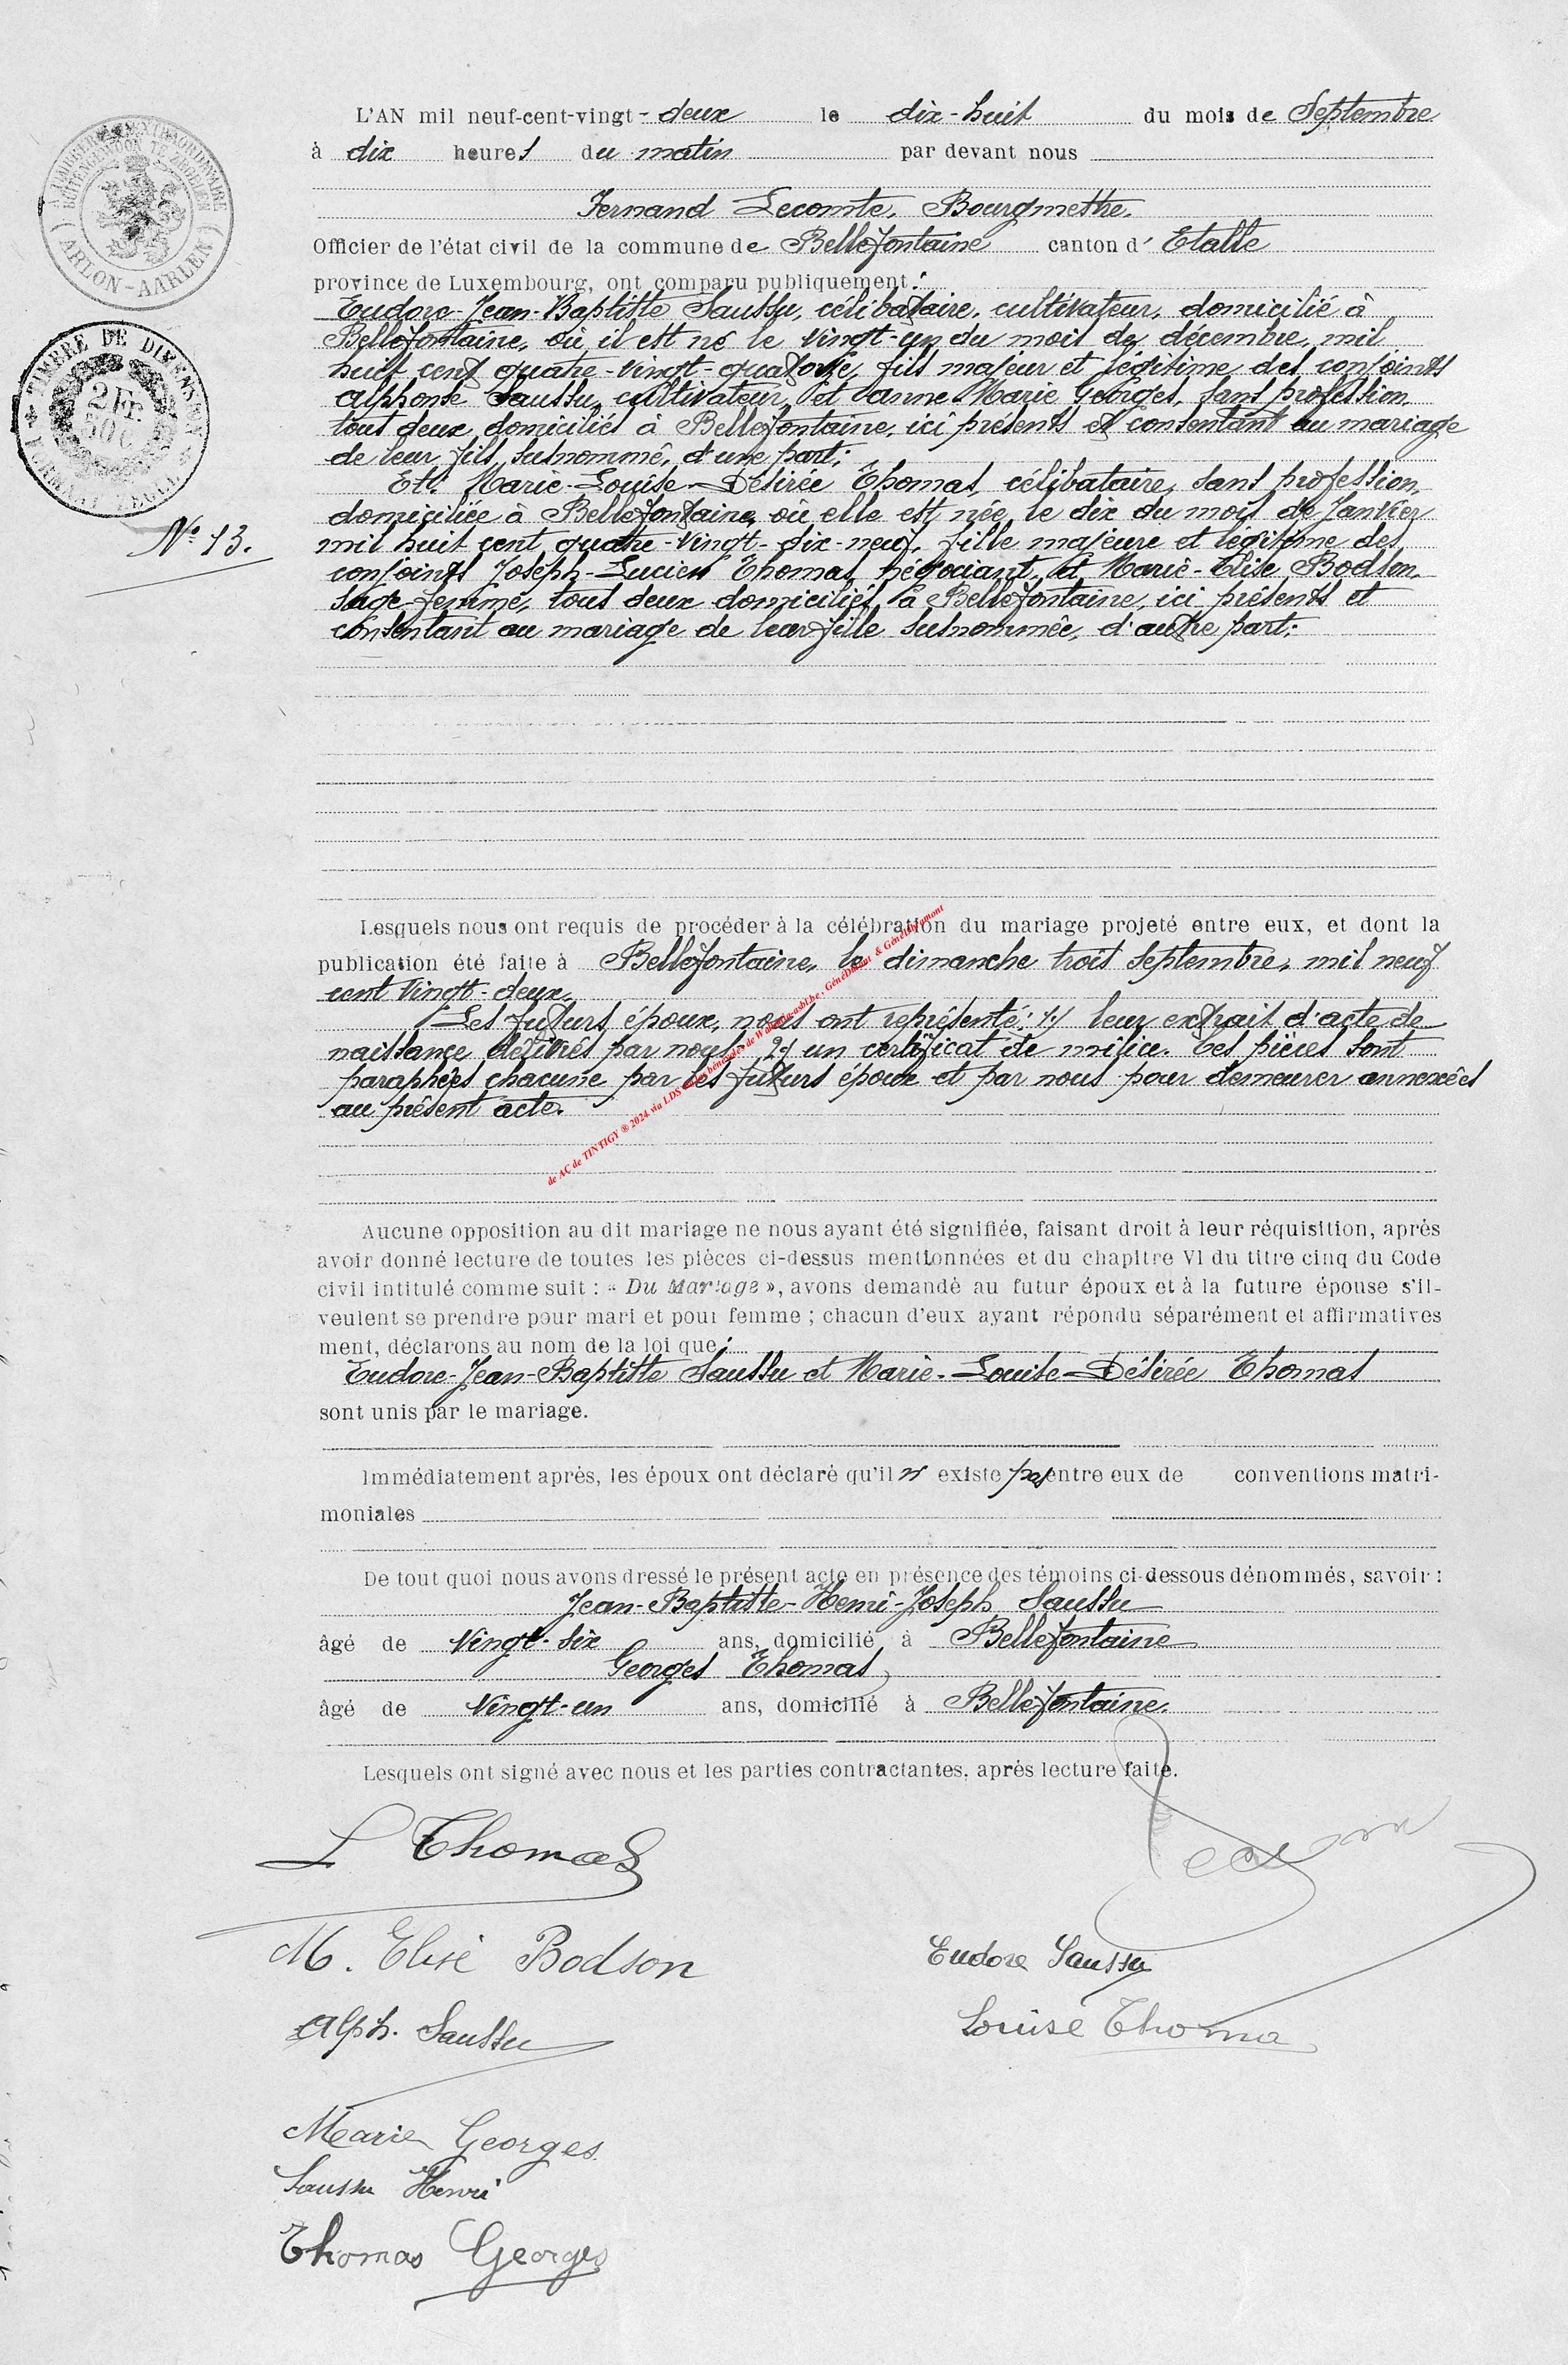 TIMBRE EXTRAORDINAIRE
BUITENGEWOON TE ZEGELEN
ARLON-AARLEN
TIMBRE DE DIMENSION
2 FR.
50 C
N° 13.
L'AN mil neuf-cent-vingt-deux le dix-huit du mois de Septembre
à dix heures du matin par devant nous
Fernand Lecomte, Bourgmestre.
Officier de l'état civil de la commune de Bellefontaine canton d' Etalle
province de Luxembourg, ont comparu publiquement :
Eudore-Jean-Baptiste Saussu, célibataire, cultivateur, domicilié à
Bellefontaine, où il est né le vingt-un du mois de décembre, mil
huit cent quatre-vingt-quatorze, fils majeur et légitime des conjoints
Alphonse Saussu, cultivateur, et Anne Marie Georges, sans profession,
tous deux domiciliés à Bellefontaine, ici présents et consentant au mariage
de leur fils susnommé, d'une part;
Et: Marie-Louise-Désirée Thomas, célibataire, sans profession,
domiciliée à Bellefontaine, où elle est née le dix du mois de Janvier
mil huit cent quatre-vingt-dix-neuf, fille majeure et légitime des
conjoints Joseph-Lucien Thomas, négociant, et Marie-Elise Bodson,
sage-femme, tous deux domiciliés à Bellefontaine, ici présents et
consentant au mariage de leur fille susnommée, d'autre part;
Lesquels nous ont requis de procéder à la célébration du mariage projeté entre eux, et dont la
publication été faite à Bellefontaine, le dimanche trois septembre, mil neuf
cent vingt-deux.
Les futurs époux, nous ont représenté: 1/ leur extrait d'acte de
naissance délivrés par nous, 2/ un certificat de milice. Ces pièces sont
paraphées chacune par les futurs époux et par nous pour demeurer annexées
au présent acte.
de AC de TINTIGY ® 2024 via LDS et les bénévoles de Wallonia-asbl.be, GénéDinant & GénéLibramont
Aucune opposition au dit mariage ne nous ayant été signifiée, faisant droit à leur réquisition, après
avoir donné lecture de toutes les pièces ci-dessus mentionnées et du chapitre VI du titre cinq du Code
civil intitulé comme suit : « Du Mariage », avons demandé au futur époux et à la future épouse s'il-
veulent se prendre pour mari et pour femme ; chacun d'eux ayant répondu séparément et affirmatives
ment, déclarons au nom de la loi que :
Eudore-Jean-Baptiste Saussu et Marie-Louise-Désirée Thomas
sont unis par le mariage.
Immédiatement après, les époux ont déclaré qu'il n' existe pas entre eux de conventions matri-
moniales
De tout quoi nous avons dressé le présent acte en présence des témoins ci-dessous dénommés, savoir :
Jean-Baptiste-Henri-Joseph Saussu
âgé de vingt-six ans, domicilié à Bellefontaine
Georges Thomas
âgé de vingt-un ans, domicilié à Bellefontaine.
Lesquels ont signé avec nous et les parties contractantes, après lecture faite.
L Thomas
M. Elise Bodson
Eudore Saussu
Alph. Saussu
Louise Thomas
Marie Georges
Saussu Henri
Thomas Georges